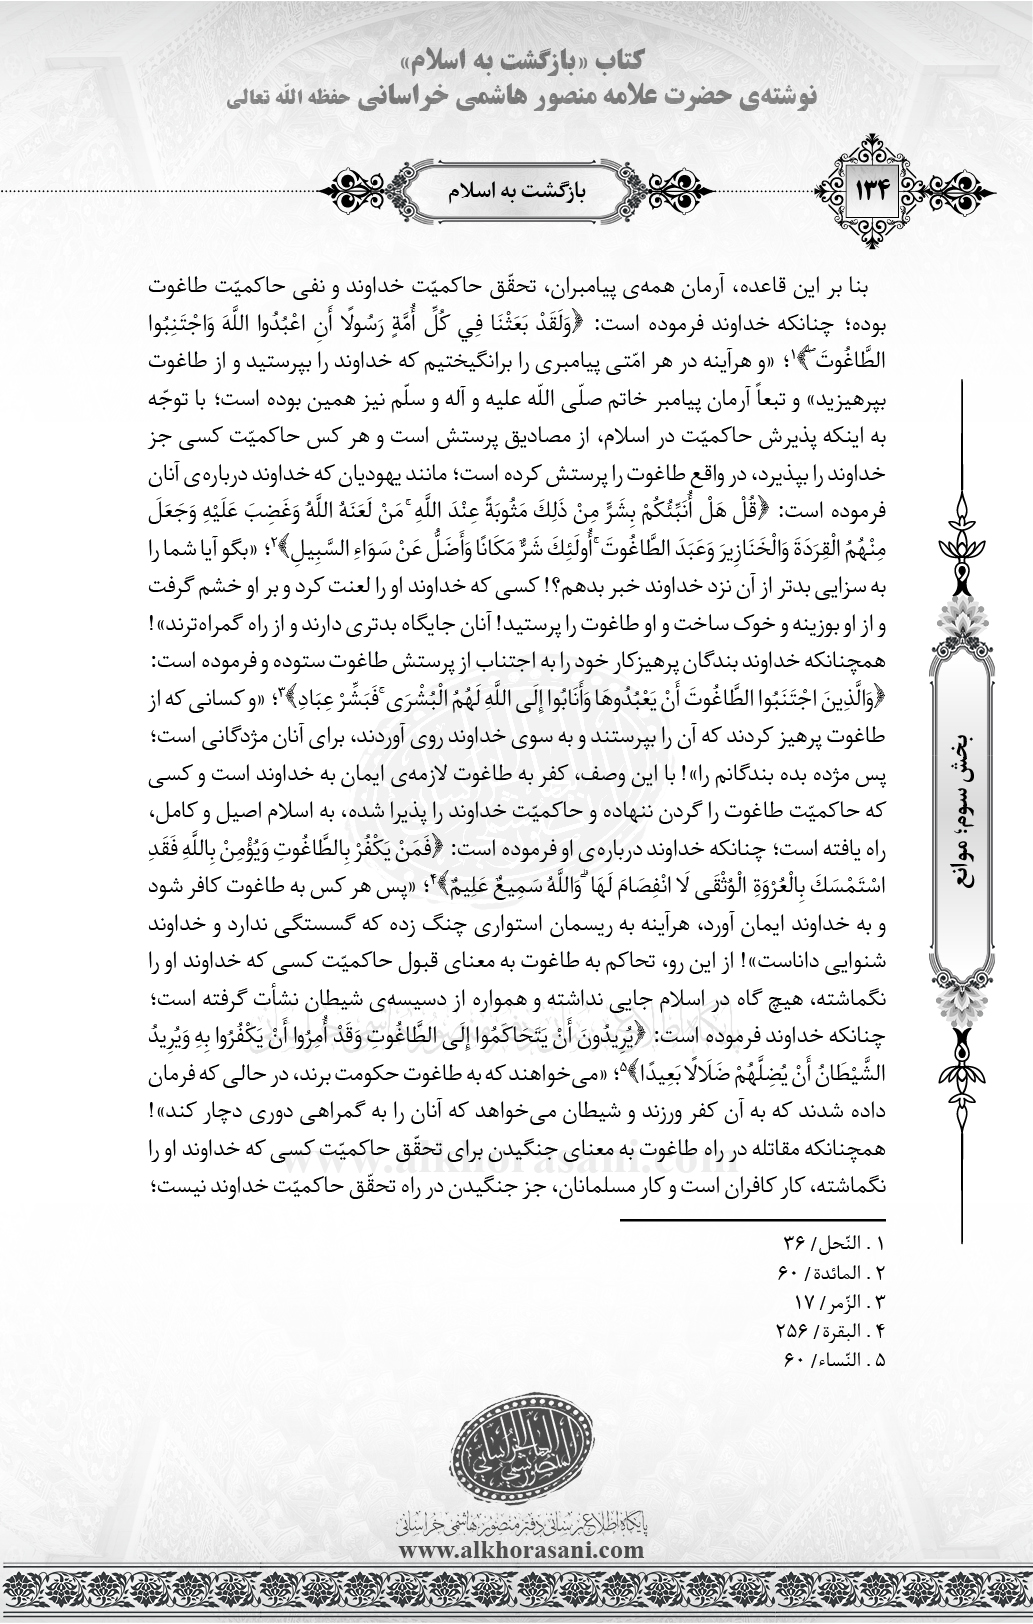 کتاب «بازگشت به اسلام»
نوشته‌ی حضرت علامه منصور هاشمی خراسانی حفظه الله تعالی
۱۳۴
بازگشت به اسلام
بنا بر این قاعده، آرمان همه‌ی پیامبران، تحقّق حاکمیّت خداوند و نفی حاکمیّت طاغوت
بوده؛ چنانکه خداوند فرموده است: ﴿وَلَقَدْ بَعَثْنَا فِي كُلِّ أُمَّةٍ رَسُولًا أَنِ اعْبُدُوا اللَّهَ وَاجْتَنِبُوا
الطَّاغُوتَ ۖ﴾۱؛ «و هرآینه در هر امّتی پیامبری را برانگیختیم که خداوند را بپرستید و از طاغوت
بپرهیزید» و تبعاً آرمان پیامبر خاتم صلّی اللّه علیه و آله و سلّم نیز همین بوده است؛ با توجّه
به اینکه پذیرش حاکمیّت در اسلام، از مصادیق پرستش است و هر کس حاکمیّت کسی جز
خداوند را بپذیرد، در واقع طاغوت را پرستش کرده است؛ مانند یهودیان که خداوند درباره‌ی آنان
فرموده است: ﴿قُلْ هَلْ أُنَبِّئُكُمْ بِشَرٍّ مِنْ ذَلِكَ مَثُوبَةً عِنْدَ اللَّهِ ۚ مَنْ لَعَنَهُ اللَّهُ وَغَضِبَ عَلَيْهِ وَجَعَلَ
مِنْهُمُ الْقِرَدَةَ وَالْخَنَازِيرَ وَعَبَدَ الطَّاغُوتَ ۚ أُولَئِكَ شَرٌّ مَكَانًا وَأَضَلُّ عَنْ سَوَاءِ السَّبِيلِ﴾۲؛ «بگو آیا شما را
به سزایی بدتر از آن نزد خداوند خبر بدهم؟! کسی که خداوند او را لعنت کرد و بر او خشم گرفت
و از او بوزینه و خوک ساخت و او طاغوت را پرستید! آنان جایگاه بدتری دارند و از راه گمراه‌ترند»!
همچنانکه خداوند بندگان پرهیزکار خود را به اجتناب از پرستش طاغوت ستوده و فرموده است:
﴿وَالَّذِينَ اجْتَنَبُوا الطَّاغُوتَ أَنْ يَعْبُدُوهَا وَأَنَابُوا إِلَى اللَّهِ لَهُمُ الْبُشْرَى ۚ فَبَشِّرْ عِبَادِ﴾۳؛ «و کسانی که از
طاغوت پرهیز کردند که آن را بپرستند و به سوی خداوند روی آوردند، برای آنان مژدگانی است؛
پس مژده بده بندگانم را»! با این وصف، کفر به طاغوت لازمه‌ی ایمان به خداوند است و کسی
که حاکمیّت طاغوت را گردن ننهاده و حاکمیّت خداوند را پذیرا شده، به اسلام اصیل و کامل،
راه یافته است؛ چنانکه خداوند درباره‌ی او فرموده است: ﴿فَمَنْ يَكْفُرْ بِالطَّاغُوتِ وَيُؤْمِنْ بِاللَّهِ فَقَدِ
اسْتَمْسَكَ بِالْعُرْوَةِ الْوُثْقَى لَا انْفِصَامَ لَهَا ۗ وَاللَّهُ سَمِيعٌ عَلِيمٌ﴾۴؛ «پس هر کس به طاغوت کافر شود
و به خداوند ایمان آورد، هرآینه به ریسمان استواری چنگ زده که گسستگی ندارد و خداوند
شنوایی داناست»! از این رو، تحاکم به طاغوت به معنای قبول حاکمیّت کسی که خداوند او را
نگماشته، هیچ گاه در اسلام جایی نداشته و همواره از دسیسه‌ی شیطان نشأت گرفته است؛
چنانکه خداوند فرموده است: ﴿يُرِيدُونَ أَنْ يَتَحَاكَمُوا إِلَى الطَّاغُوتِ وَقَدْ أُمِرُوا أَنْ يَكْفُرُوا بِهِ وَيُرِيدُ
الشَّيْطَانُ أَنْ يُضِلَّهُمْ ضَلَالًا بَعِيدًا﴾۵؛ «می‌خواهند که به طاغوت حکومت برند، در حالی که فرمان
داده شدند که به آن کفر ورزند و شیطان می‌خواهد که آنان را به گمراهی دوری دچار کند»!
همچنانکه مقاتله در راه طاغوت به معنای جنگیدن برای تحقّق حاکمیّت کسی که خداوند او را
نگماشته، کار کافران است و کار مسلمانان، جز جنگیدن در راه تحقّق حاکمیّت خداوند نیست؛
بخش سوم؛ موانع
۱ . النّحل/ ۳۶
۲ . المائدة/ ۶۰
۳ . الزّمر/ ۱۷
۴ . البقرة/ ۲۵۶
۵ . النّساء/ ۶۰
المنصور الهاشمي الخراساني
پایگاه اطلاع‌رسانی دفتر منصور هاشمی خراسانی
www.alkhorasani.com